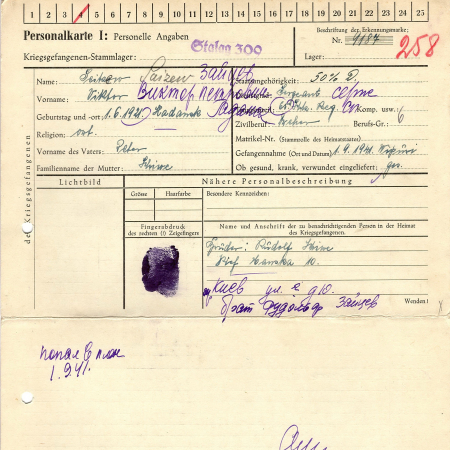 1 2 3 4 5 6 7 8 9 10 11 12 13 14 15 16 17 18 19 20 21 22 23 24 25
Personalkarte I: Personelle Angaben
Beschriftung der Erkennungsmarke:
Nr. 9187
258
Kriegsgefangenen-Stammlager: Stalag 300
Lager:
Name: Saizew Зайцев
Staatsangehörigkeit:
Vorname: Viktor Виктор Петрович
Dienstgrad: Sergeant
Geburtstag und -ort: 1.6.1921
Truppenteil: Reg. Komp. usw.: 6
Religion: ort.
Zivilberuf: Berufs-Gr.:
Matrikel-Nr. (Stammrolle des Heimatstaates)
Vorname des Vaters: Peter
Gefangennahme (Ort und Datum) 1.9.1941
Familienname der Mutter:
Ob gesund, krank, verwundet eingeliefert: ges.
des Kriegsgefangenen
Lichtbild
Nähere Personalbeschreibung
Grösse Haarfarbe Besondere Kennzeichen:
Fingerabdruck
des rechten (!) Zeigefingers
Name und Anschrift der zu benachrichtigenden Person in der Heimat
des Kriegsgefangenen:
Bruder: Rudolf
10.
Киев ул.
брат Рудольф Зайцев
Wenden!
попал в плен
1.9.41.